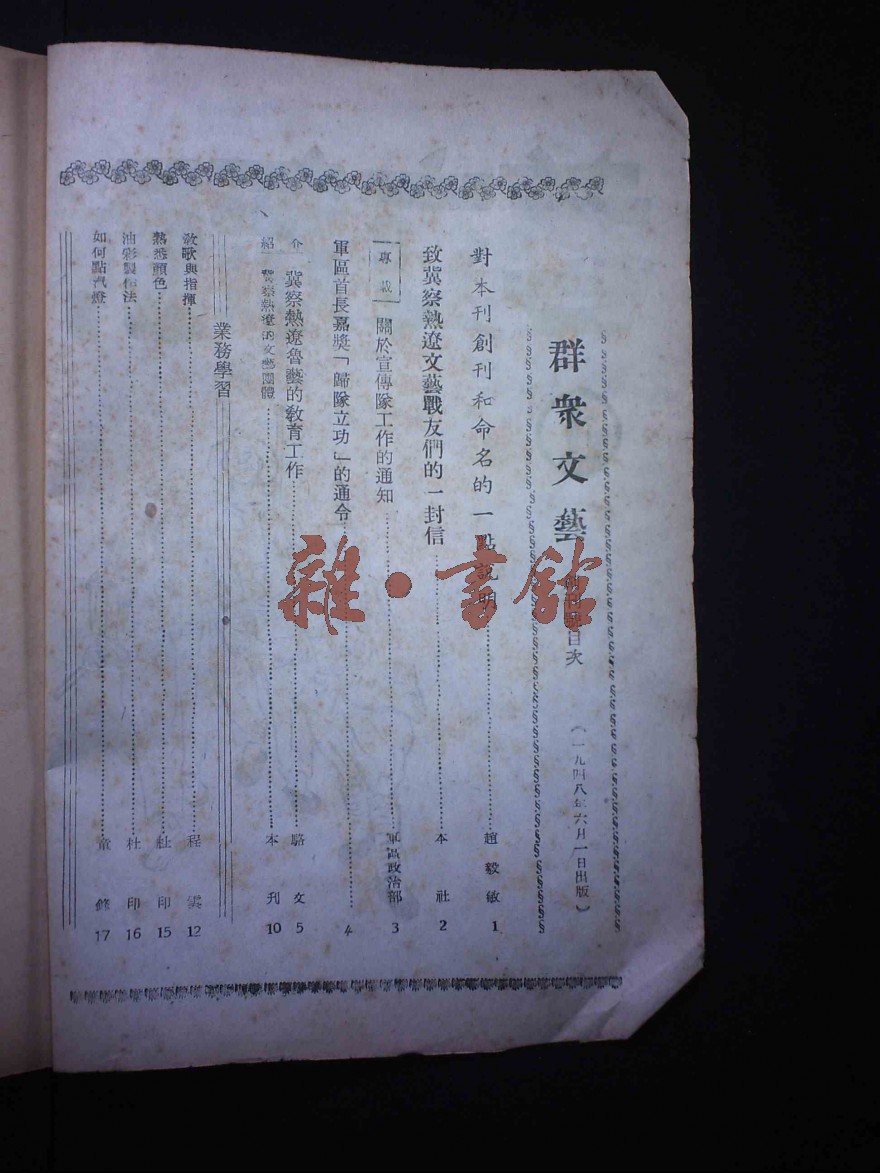 群衆文藝 創刊號目次 (一九四八年六月一日出版)
對本刊創刊和命名的一點說明 趙毅敏 1
致冀察熱遼文藝戰友們的一封信 本社 2
專載 關於宣傳隊工作的通知 軍區政治部 3
軍區首長嘉獎「歸隊立功」的通令 4
介紹
冀察熱遼魯藝的敎育工作 駱文 5
冀察熱遼的文藝團體 本刊 10
業務學習
敎歌與指揮 程雲 12
熟悉顏色 杜印 15
油彩製作法 杜印 16
如何點汽燈 童 17
雜·書館